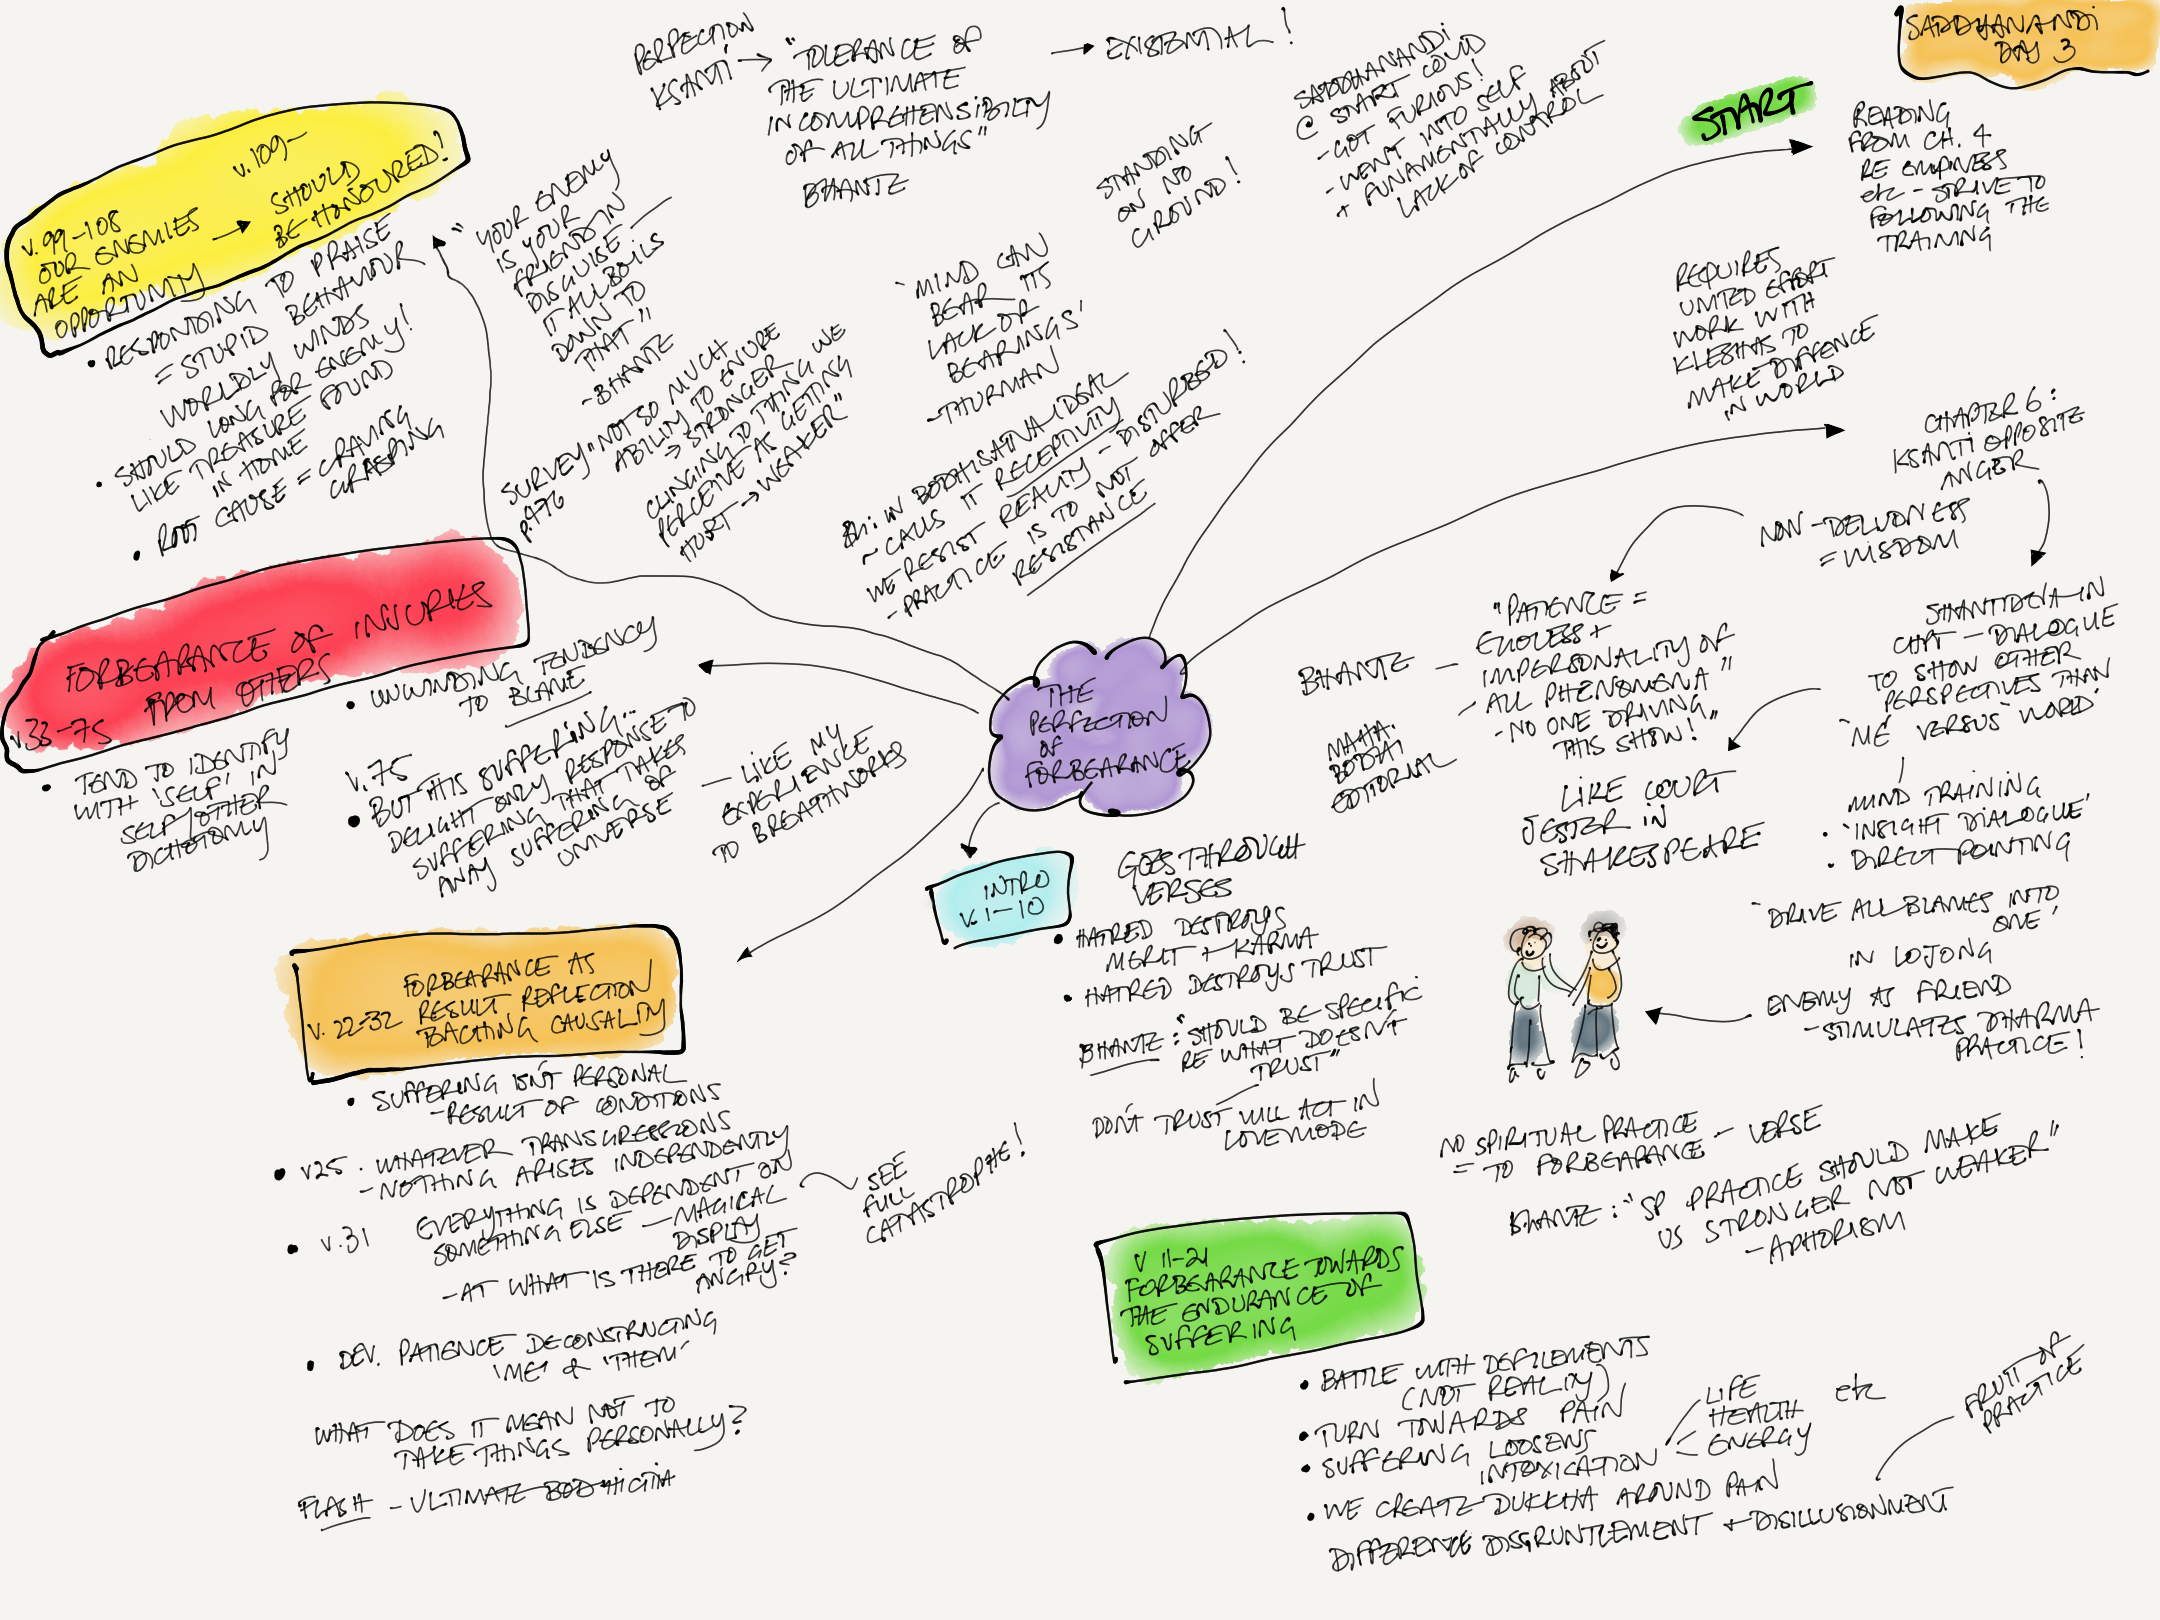 SADDHANANDI
DAY 3
START
READING
FROM CH. 4
RE EMPINESS
etc - STRIVE TO
FOLLOWING THE
TRAINING
REQUIRES
UNITED EFFORT
WORK WITH
KLESHAS TO
MAKE DIFFENCE
IN WORLD
CHAPTER 6:
KSANTI OPPOSITE
ANGER
NON-DELUDNESS
= WISDOM
"PATIENCE =
ENDLESS +
IMPERSONALITY OF
ALL PHENOMENA"
- NO ONE DRIVING
THIS SHOW!"
BHANTE -
MAHA.
BODHI
EDITORIAL
SHANTIDEVA IN
CHPT - DIALOGUE
TO SHOW OTHER
PERSPECTIVES THAN
'ME' VERSUS 'WORLD'
LIKE COURT
JESTER IN
SHAKESPEARE
MIND TRAINING
• 'INSIGHT DIALOGUE'
• DIRECT POINTING
'DRIVE ALL BLAMES INTO
ONE'
IN LOJONG
ENEMY AS FRIEND
- STIMULATES DHARMA
PRACTICE!
NO SPIRITUAL PRACTICE
= TO FORBEARANCE - VERSE
BHANTE: "SP PRACTICE SHOULD MAKE
US STRONGER NOT WEAKER"
- APHORISM
THE
PERFECTION
OF
FORBEARANCE
INTRO
v. 1-10
GOES THROUGH
VERSES
• HATRED DESTROYS
MERIT + KARMA
• HATRED DESTROYS TRUST
BHANTE: "SHOULD BE SPECIFIC
RE WHAT DOESN'T
TRUST"
DON'T TRUST WILL ACT IN
LOVE MODE
V 11-21
FORBEARANCE TOWARDS
THE ENDURANCE OF
SUFFERING
• BATTLE WITH DEFILEMENTS
(NOT REALITY)
• TURN TOWARDS PAIN
• SUFFERING LOOSENS
INTOXICATION
LIFE
HEALTH etc
ENERGY
• WE CREATE DUKKHA AROUND PAIN
DIFFERENCE DISGRUNTLEMENT + DISILLUSIONMENT
FRUIT OF
PRACTICE
FORBEARANCE AS
v. 22-32 RESULT REFLECTION
TEACHING CAUSALITY
• SUFFERING ISN'T PERSONAL
- RESULT OF CONDITIONS
• v25. WHATEVER TRANSGRESSIONS
- NOTHING ARISES INDEPENDENTLY
• v.31 EVERYTHING IS DEPENDENT ON
SOMETHING ELSE - MAGICAL
DISPLAY
- AT WHAT IS THERE TO GET
ANGRY?
SEE
FULL
CATASTROPHE!
• DEV. PATIENCE DECONSTRUCTING
'ME' & 'THEM'
WHAT DOES IT MEAN NOT TO
TAKE THINGS PERSONALLY?
FLASH - ULTIMATE BODHICITTA
FORBEARANCE OF INJURIES
v.33-75 FROM OTHERS
• TEND TO IDENTIFY
WITH 'SELF' IN
SELF/OTHER
DICHOTOMY
• UNWINDING TENDENCY
TO BLAME
v.75
• BUT THIS SUFFERING...
DELIGHT ONLY RESPONSE TO
SUFFERING THAT TAKES
AWAY SUFFERING OF
UNIVERSE
- LIKE MY
EXPERIENCE
TO BREATHWORKS
v.109-
SHOULD
BE HONOURED!
v. 99-108
OUR ENEMIES
ARE AN
OPPORTUNITY
• RESPONDING TO PRAISE
= STUPID BEHAVIOUR
WORLDLY WINDS
• SHOULD LONG FOR ENEMY!
LIKE TREASURE FOUND
IN HOME
• ROOT CAUSE = CRAVING
GRASPING
"YOUR ENEMY
IS YOUR
FRIEND IN
DISGUISE -
IT ALL BOILS
DOWN TO
THAT"
- BHANTE
SURVEY "NOT SO MUCH
p.476 ABILITY TO ENDURE
→ STRONGER
CLINGING TO THING WE
PERCEIVE AS GETTING
HURT → WEAKER"
PERFECTION
KSANTI → "TOLERANCE OF
THE ULTIMATE
INCOMPREHENSIBILTY
OF ALL THINGS"
BHANTE
→ EXISTENTIAL!
STANDING
ON NO
GROUND!
SADDHANANDI
@ START COVID
- GOT FURIOUS!
- WENT INTO SELF
+ FUNAMENTALLY ABOUT
LACK OF CONTROL
'MIND CAN
BEAR ITS
LACK OF
BEARINGS'
- THURMAN
Bh: IN BODHISATVA IDEAL
~ CALLS IT RECEPTIVITY
WE RESIST REALITY - DISTURBED!
- PRACTICE IS TO NOT OFFER
RESISTANCE